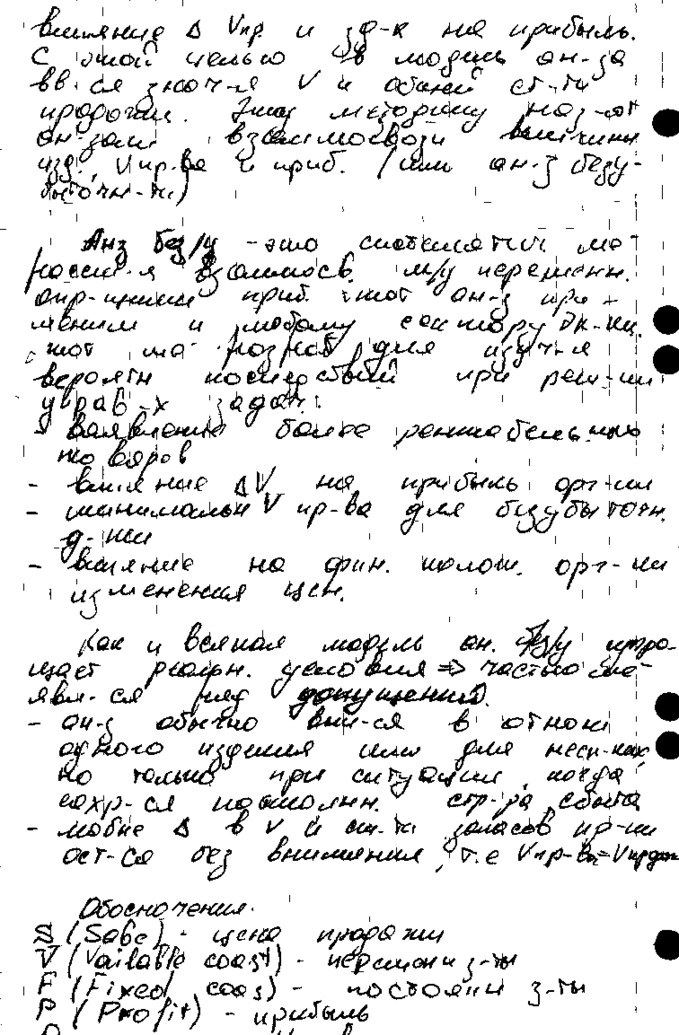 влияние Δ Vпр. и за-к на прибыль.
С этой целью в модель ан-за
вв-ся знач-я V и общей ст-ти
продажи. Эту методику наз-ют
ан-зом взаимосвязи величины
изд., Vпр-ва и приб. (или ан-з безу-
быточн-ти)
Анз без/у - это систематич
взаимось. м/у переменн.
опр-щими приб. этот ан-з при-
меним к любому сектору эк-ки.
для изуч-я
вероятн последствий при реш-ии
управ-х задач:
- выявление более рентабельных
товаров
- влияние ΔV на прибыль орг-ии
- минимальн V пр-ва для безубыточн.
д-ти
- влияние на фин. полож. орг-ии
изменения цен.
Как и всякая модель ан. без/у упро-
щает реальн. условия => частью
явл-ся ряд допущений.
- ан-з обычно вып-ся в отнош
одного изделия или для неск-ких,
но только при ситуации, когда
сохр-ся постоянн. стр-ра сбыта
- любые Δ в V и ст-ти запасов пр-ии
ост-ся без внимания, т.е Vпр-ва=Vпродаж
Обозначения.
S (Sabe) - цена продажи
V (Vailable coast) - переменн з-ты
F (Fixed coas) - постоянн з-ты
P (Profit) - прибыль